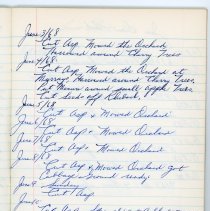 June 3/68
Cut Asp. Mowed the Orchard
& around Cherry Trees
June 4/68
Cut Asp. Mowed the Orchard at
Murrays Harrowed around Cherry Trees,
Put Manure around small Apple Trees
Cut Seed off Rhubarb,
June 5/68
Cut Asp & Mowed Orchard
June 6/68
Cut Asp & Mowed Orchard
June 7/68
Cut Asp & Mowed Orchard
June 8/68
Cut Asp & Mowed Orchard got
Cabbage Ground ready.
June 9
Sunday
Cut Asp
June 10
Cut Asp